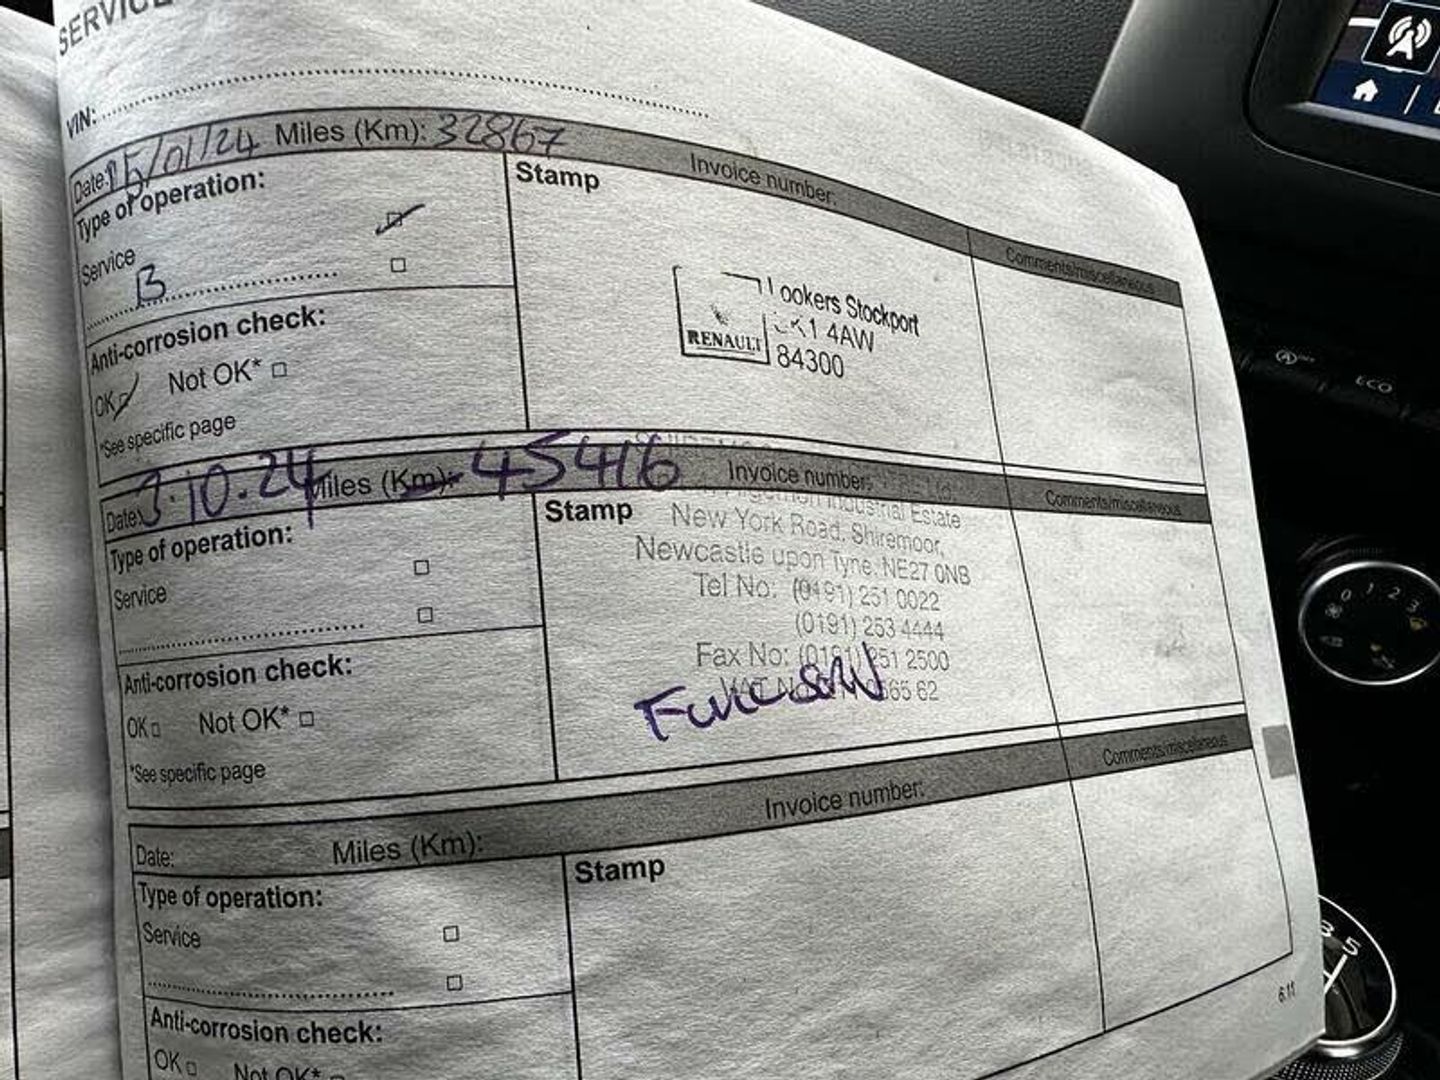 SERVICE
VIN:
Date: 15/01/24 Miles (Km): 32867 Invoice number: Comments/miscellaneous
Type of operation:
Service
B
Stamp
Lookers Stockport
SK1 4AW
84300
RENAULT
Anti-corrosion check:
OK Not OK*
*See specific page
Date: 3.10.24 Miles (Km): 45416 Invoice number: Comments/miscellaneous
Type of operation:
Service
Stamp
Industrial Estate
New York Road, Shiremoor,
Newcastle upon Tyne, NE27 0NB
Tel No: (0191) 251 0022
(0191) 253 4444
Fax No: (0191) 251 2500
VAT
Full SeW
Anti-corrosion check:
OK Not OK*
*See specific page
Date: Miles (Km): Invoice number: Comments/miscellaneous
Type of operation:
Service
Stamp
Anti-corrosion check:
OK Not OK*
6.11
ECO
0 1 2 3
3 5